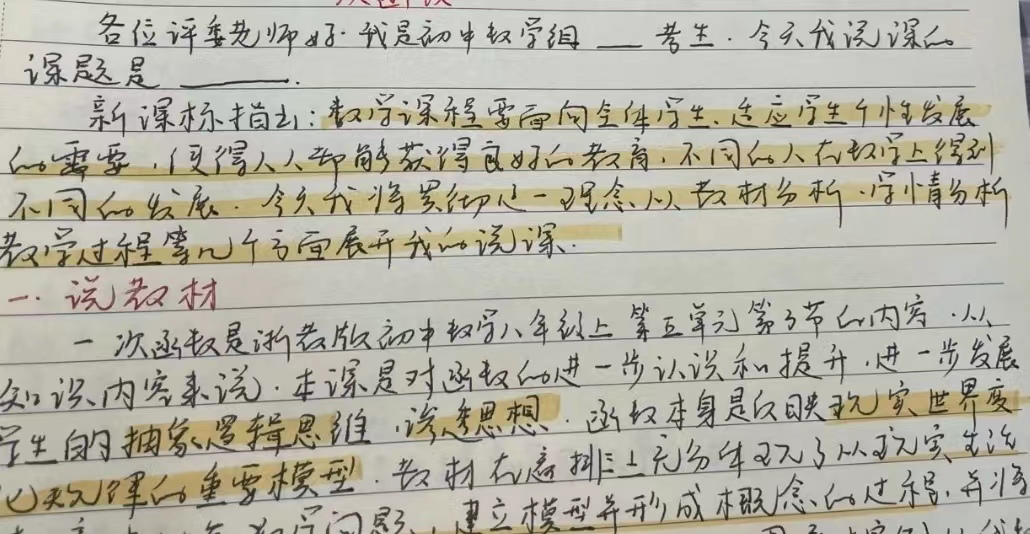 各位评委老师好.我是初中数学组 ___ 考生.今天我说课的
课题是 ______.
新课标指出:数学课程要面向全体学生、适应学生个性发展
的需要,使得人人都能获得良好的教育,不同的人在数学上得到
不同的发展.今天我将贯彻这一理念从教材分析.学情分析
教学过程等几个方面展开我的说课.
一.说教材
一次函数是浙教版初中数学八年级上第五单元第3节的内容.从
知识内容来说.本课是对函数的进一步认识和提升.进一步发展
学生的抽象逻辑思维.渗透思想.函数本身是反映现实世界变
化规律的重要模型.教材在安排上充分体现了从现实生活
问题,建立模型并形成概念的过程,并将